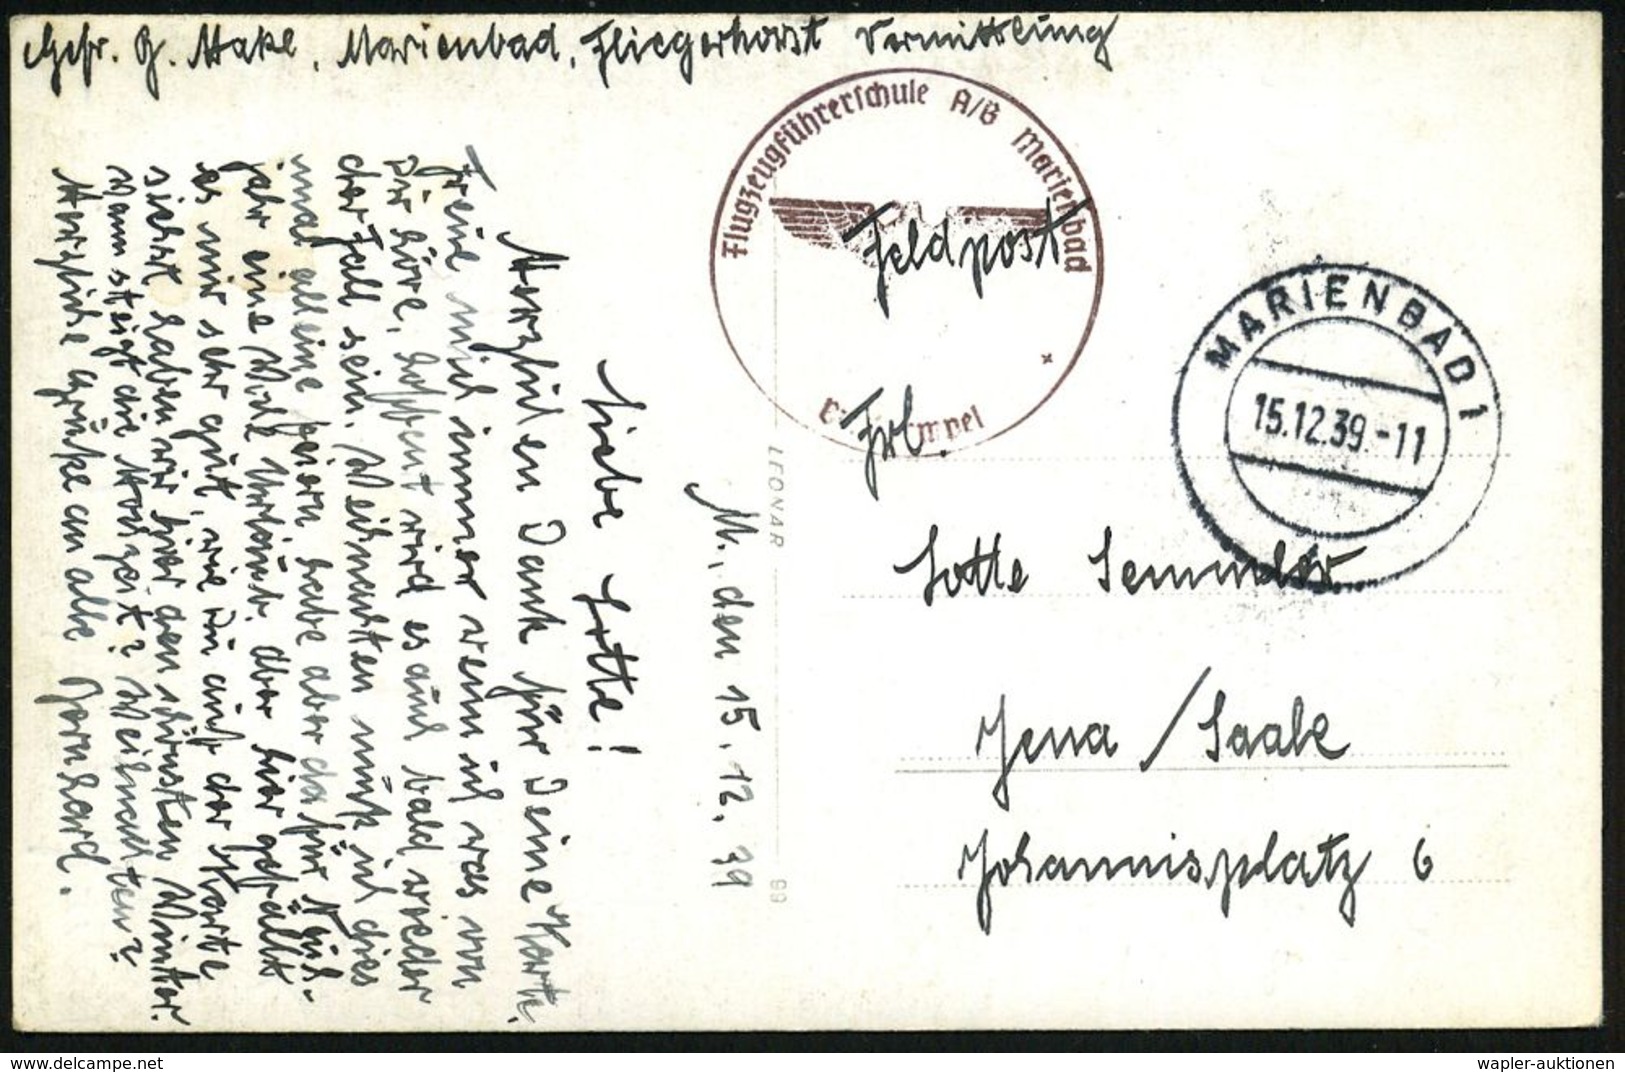 Gefr. G. Hake, Marienbad, Fliegerhorst Vermittlung
Flugzeugführerschule A/B Marienbad
Feldpost
MARIENBAD 1
15.12.39.-11
Frl.
Lotte Semmler
Jena/Saale
Johannisplatz 6
LEONAR
M., den 15. 12. 39
Liebe Lotte!
Herzlichen Dank für Deine Karte.
Freue mich immer wenn ich was von
Dir höre, hoffent wird es auch bald wieder
der Fall sein. Weihnachten muß ich dies
mal alleine feiern, habe aber dafür Neu-
jahr eine Woche Urlaub. Aber hier gefällt
es mir sehr gut, wie Du auf der Karte
siehst haben wir hier den schönsten Winter.
Wann steigt die Hochzeit? Weihnachten?
Herzliche Grüße an alle Bernhard.
99
wapler-auktionen